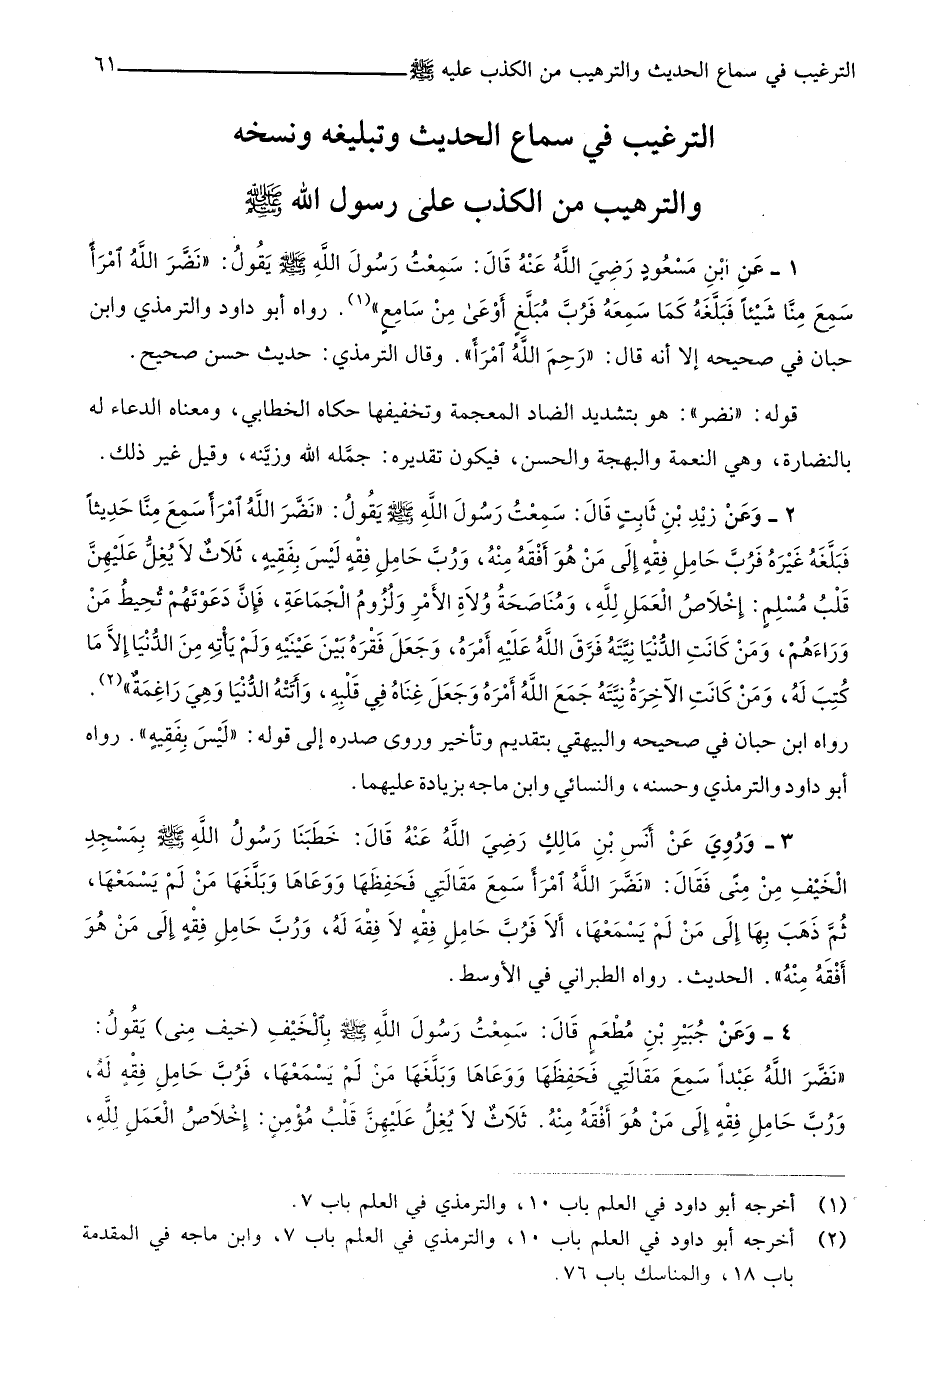 الترغيب في سماع الحديث والترهيب من الكذب عليه ﷺ ٦١
الترغيب في سماع الحديث وتبليغه ونسخه
والترهيب من الكذب على رسول الله ﷺ
١ ـ عَنِ ابْنِ مَسْعُودٍ رَضِيَ اللَّهُ عَنْهُ قَالَ: سَمِعْتُ رَسُولَ اللَّهِ ﷺ يَقُولُ: «نَضَّرَ اللَّهُ ٱمْرَأً
سَمِعَ مِنَّا شَيْئاً فَبَلَّغَهُ كَمَا سَمِعَهُ فَرُبَّ مُبَلَّغٍ أَوْعَىٰ مِنْ سَامِعٍ»(١). رواه أبو داود والترمذي وابن
حبان في صحيحه إلا أنه قال: «رَحِمَ اللَّهُ ٱمْرَأً». وقال الترمذي: حديث حسن صحيح.
قوله: «نضر»: هو بتشديد الضاد المعجمة وتخفيفها حكاه الخطابي، ومعناه الدعاء له
بالنضارة، وهي النعمة والبهجة والحسن، فيكون تقديره: جمَّله الله وزيَّنه، وقيل غير ذلك.
٢ ـ وَعَنْ زَيْدِ بْنِ ثَابِتٍ قَالَ: سَمِعْتُ رَسُولَ اللَّهِ ﷺ يَقُولُ: «نَضَّرَ اللَّهُ ٱمْرَأً سَمِعَ مِنَّا حَدِيثاً
فَبَلَّغَهُ غَيْرَهُ فَرُبَّ حَامِلِ فِقْهٍ إِلَى مَنْ هُوَ أَفْقَهُ مِنْهُ، وَرُبَّ حَامِلِ فِقْهٍ لَيْسَ بِفَقِيهٍ، ثَلَاثٌ لاَ يُغِلُّ عَلَيْهِنَّ
قَلْبُ مُسْلِمٍ: إِخْلاَصُ الْعَمَلِ لِلَّهِ، وَمُنَاصَحَةُ وُلاَةِ الأَمْرِ وَلُزُومُ الْجَمَاعَةِ، فَإِنَّ دَعْوَتَهُمْ تُحِيطُ مَنْ
وَرَاءَهُمْ، وَمَنْ كَانَتِ الدُّنْيَا نِيَّتَهُ فَرَّقَ اللَّهُ عَلَيْهِ أَمْرَهُ، وَجَعَلَ فَقْرَهُ بَيْنَ عَيْنَيْهِ وَلَمْ يَأْتِهِ مِنَ الدُّنْيَا إِلاَّ مَا
كُتِبَ لَهُ، وَمَنْ كَانَتِ الآخِرَةُ نِيَّتَهُ جَمَعَ اللَّهُ أَمْرَهُ وَجَعَلَ غِنَاهُ فِي قَلْبِهِ، وَأَتَتْهُ الدُّنْيَا وَهِيَ رَاغِمَةٌ»(٢).
رواه ابن حبان في صحيحه والبيهقي بتقديم وتأخير وروى صدره إلى قوله: «لَيْسَ بِفَقِيهٍ». رواه
أبو داود والترمذي وحسنه، والنسائي وابن ماجه بزيادة عليهما.
٣ ـ وَرُوِيَ عَنْ أَنَسِ بْنِ مَالِكٍ رَضِيَ اللَّهُ عَنْهُ قَالَ: خَطَبَنَا رَسُولُ اللَّهِ ﷺ بِمَسْجِدِ
الْخَيْفِ مِنْ مِنًى فَقَالَ: «نَضَّرَ اللَّهُ ٱمْرَأً سَمِعَ مَقَالَتِي فَحَفِظَهَا وَوَعَاهَا وَبَلَّغَهَا مَنْ لَمْ يَسْمَعْهَا،
ثُمَّ ذَهَبَ بِهَا إِلَى مَنْ لَمْ يَسْمَعْهَا، أَلاَ فَرُبَّ حَامِلِ فِقْهٍ لاَ فِقْهَ لَهُ، وَرُبَّ حَامِلِ فِقْهٍ إِلَى مَنْ هُوَ
أَفْقَهُ مِنْهُ». الحديث. رواه الطبراني في الأوسط.
٤ ـ وَعَنْ جُبَيْرِ بْنِ مُطْعَمٍ قَالَ: سَمِعْتُ رَسُولَ اللَّهِ ﷺ بِٱلْخَيْفِ (خيف مِنى) يَقُولُ:
«نَضَّرَ اللَّهُ عَبْداً سَمِعَ مَقَالَتِي فَحَفِظَهَا وَوَعَاهَا وَبَلَّغَهَا مَنْ لَمْ يَسْمَعْهَا، فَرُبَّ حَامِلِ فِقْهٍ لَهُ،
وَرُبَّ حَامِلِ فِقْهٍ إِلَى مَنْ هُوَ أَفْقَهُ مِنْهُ. ثَلاَثٌ لاَ يُغِلُّ عَلَيْهِنَّ قَلْبُ مُؤْمِنٍ: إِخْلاَصُ الْعَمَلِ لِلَّهِ،
(١) أخرجه أبو داود في العلم باب ١٠، والترمذي في العلم باب ٧.
(٢) أخرجه أبو داود في العلم باب ١٠، والترمذي في العلم باب ٧، وابن ماجه في المقدمة
باب ١٨، والمناسك باب ٧٦.